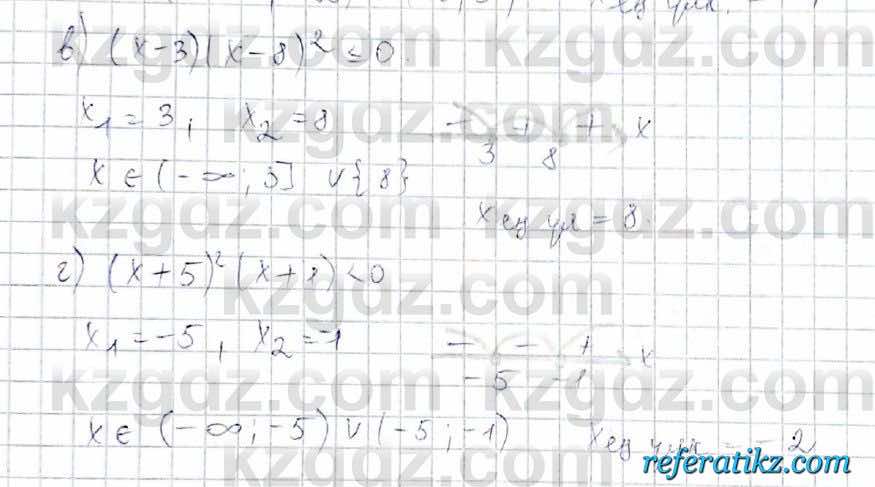 в) (x-3)(x-8)² ≤ 0
x₁ = 3, x₂ = 8 - + + x
3 8
x ∈ (-∞; 3] ∨ {8}
x ең үлк = 8.
г) (x+5)² (x+1) < 0
x₁ = -5, x₂ = -1 - - + x
-5 -1
x ∈ (-∞; -5) ∨ (-5; -1) x ең үлк = -2
kzgdz.com
referatikz.com